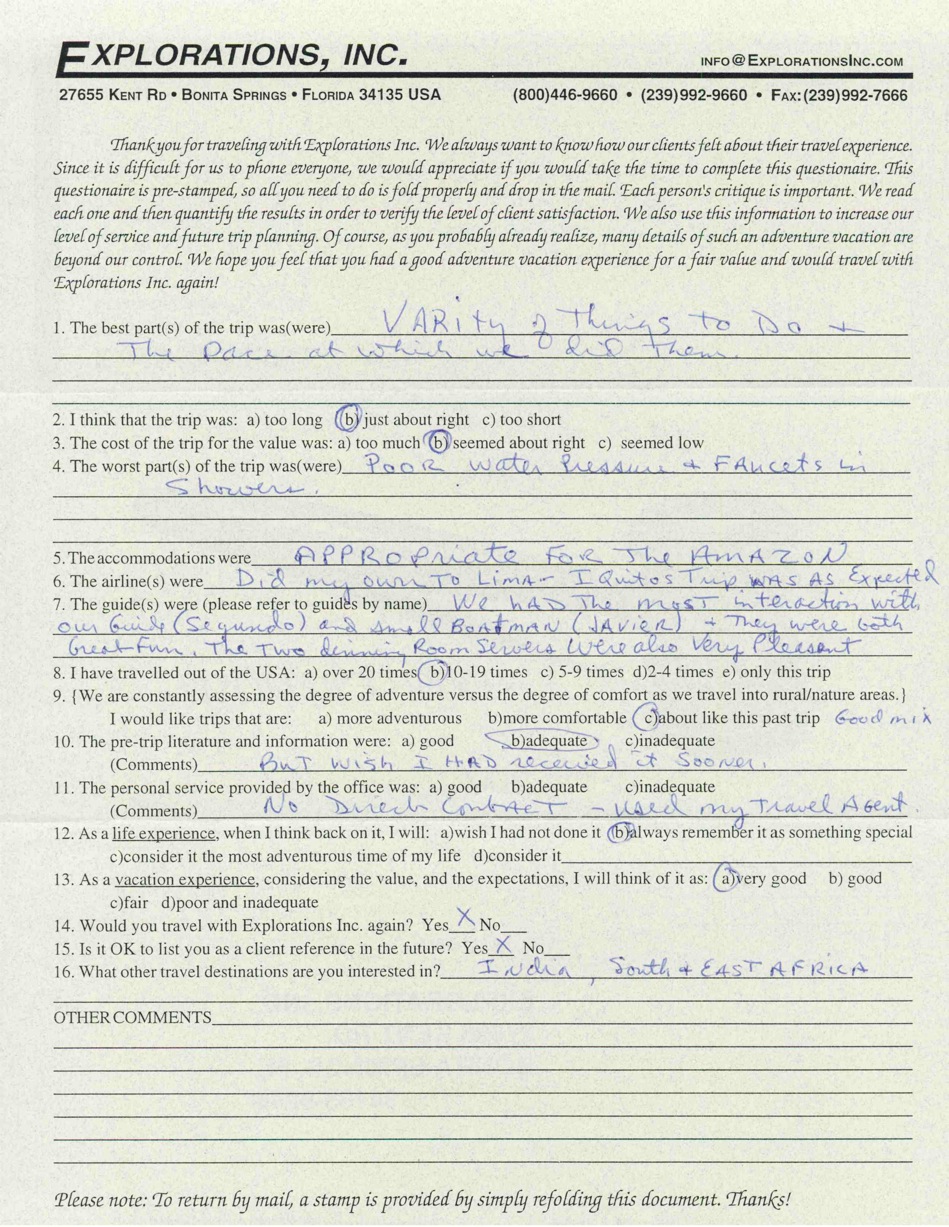 EXPLORATIONS, INC. INFO@EXPLORATIONSINC.COM
27655 KENT RD • BONITA SPRINGS • FLORIDA 34135 USA (800)446-9660 • (239)992-9660 • FAX:(239)992-7666
Thank you for traveling with Explorations Inc. We always want to know how our clients felt about their travel experience.
Since it is difficult for us to phone everyone, we would appreciate if you would take the time to complete this questionaire. This
questionaire is pre-stamped, so all you need to do is fold properly and drop in the mail. Each person's critique is important. We read
each one and then quantify the results in order to verify the level of client satisfaction. We also use this information to increase our
level of service and future trip planning. Of course, as you probably already realize, many details of such an adventure vacation are
beyond our control. We hope you feel that you had a good adventure vacation experience for a fair value and would travel with
Explorations Inc. again!
1. The best part(s) of the trip was(were) VARity of Things to Do +
The Pace at which we did Them.
2. I think that the trip was: a) too long b) just about right c) too short
3. The cost of the trip for the value was: a) too much b) seemed about right c) seemed low
4. The worst part(s) of the trip was(were) Poor water Pressure + FAucets in
Showers.
5. The accommodations were APPROpriate FOR The AMAZON
6. The airline(s) were Did my own TO LimA - IQuitos Trip was As Expected
7. The guide(s) were (please refer to guides by name) We hAD The most interaction with
our Guide (Segundo) and small BoatMAN (JAVier) + They were both
Great Fun. The Two dinning Room Servers Were also Very Pleasant
8. I have travelled out of the USA: a) over 20 times b)10-19 times c) 5-9 times d)2-4 times e) only this trip
9. {We are constantly assessing the degree of adventure versus the degree of comfort as we travel into rural/nature areas.}
I would like trips that are: a) more adventurous b)more comfortable c)about like this past trip Good mix
10. The pre-trip literature and information were: a) good b)adequate c)inadequate
(Comments) BuT wish I HAD received it Sooner.
11. The personal service provided by the office was: a) good b)adequate c)inadequate
(Comments) No Direct Contact - used my Travel Agent.
12. As a life experience, when I think back on it, I will: a)wish I had not done it b)always remember it as something special
c)consider it the most adventurous time of my life d)consider it
13. As a vacation experience, considering the value, and the expectations, I will think of it as: a)very good b) good
c)fair d)poor and inadequate
14. Would you travel with Explorations Inc. again? Yes X No
15. Is it OK to list you as a client reference in the future? Yes X No
16. What other travel destinations are you interested in? India, South + EAST AFRICA
OTHER COMMENTS
Please note: To return by mail, a stamp is provided by simply refolding this document. Thanks!